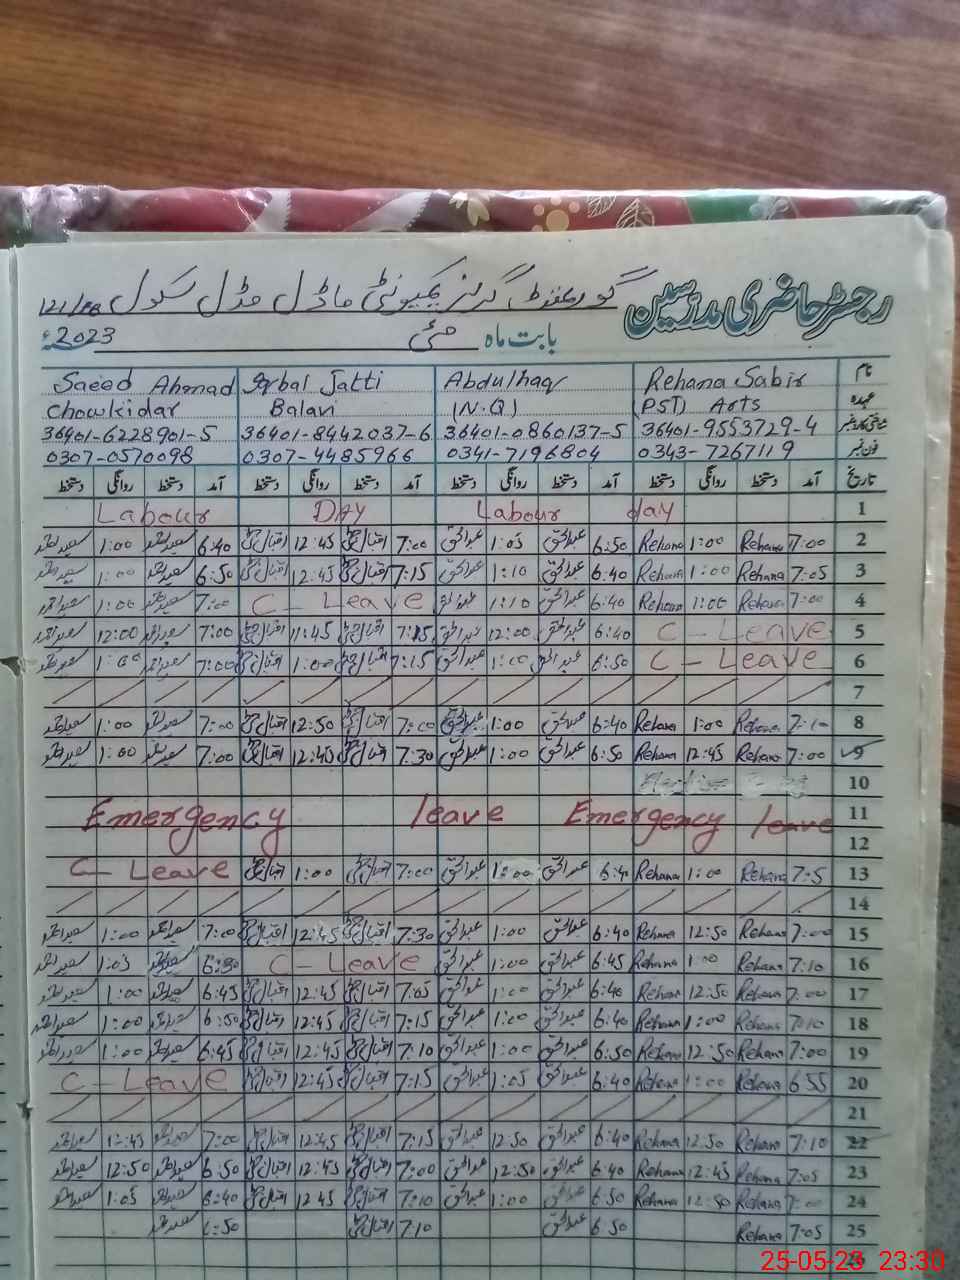 رجسٹر حاضری مدرسین گورنمنٹ گرلز کمیونٹی ماڈل مڈل سکول 121/
بابت ماہ مئی 2023ء
نام Rehana Sabir Abdulhaq Iqbal Jatti Saeed Ahmad
عہدہ (PST) Arts (N.Q) Balavi Chowkidar
شناختی کارڈ نمبر 36401-9553729-4 36401-0860137-5 36401-8442037-6 36401-6228901-5
فون نمبر 0343-7267119 0341-7196804 0307-4485966 0307-0570098
تاریخ آمد دستخط روانگی دستخط آمد دستخط روانگی دستخط آمد دستخط روانگی دستخط آمد دستخط روانگی دستخط
1 Labour DAY Labour day
2 7:00 Rehana 1:00 Rehana 6:50 عبدالحق 1:05 عبدالحق 7:00 12:45 6:40 سعید احمد 1:00 سعید احمد
3 7:05 Rehana 1:00 Rehana 6:40 عبدالحق 1:10 عبدالحق 7:15 12:45 6:50 سعید احمد 1:00 سعید احمد
4 7:00 Rehana 1:00 Rehana 6:40 عبدالحق 1:10 عبدالحق C - Leave 7:00 سعید احمد 1:00 سعید احمد
5 C - Leave 6:40 عبدالحق 12:00 عبدالحق 7:15 11:45 7:00 سعید احمد 12:00 سعید احمد
6 C - Leave 6:50 عبدالحق 1:00 عبدالحق 7:15 1:00 7:00 سعید احمد 1:00 سعید احمد
7
8 7:10 Rehana 1:00 Rehana 6:40 عبدالحق 1:00 عبدالحق 7:00 12:50 7:00 سعید احمد 1:00 سعید احمد
9 7:00 Rehana 12:45 Rehana 6:50 عبدالحق 1:00 عبدالحق 7:30 12:45 7:00 سعید احمد 1:00 سعید احمد
10
11 Emergency leave Emergency leave
12
13 7:5 Rehana 1:00 Rehana 6:40 عبدالحق 1:00 عبدالحق 7:00 1:00 C - Leave
14
15 7:00 Rehana 12:50 Rehana 6:40 عبدالحق 1:00 عبدالحق 7:30 12:45 7:00 سعید احمد 1:00 سعید احمد
16 7:10 Rehana 1:00 Rehana 6:45 عبدالحق 1:00 عبدالحق C - Leave 6:30 سعید احمد 1:05 سعید احمد
17 7:00 Rehana 12:50 Rehana 6:40 عبدالحق 1:00 عبدالحق 7:05 12:45 6:45 سعید احمد 1:00 سعید احمد
18 7:10 Rehana 1:00 Rehana 6:40 عبدالحق 1:00 عبدالحق 7:15 12:45 6:50 سعید احمد 1:00 سعید احمد
19 7:00 Rehana 12:50 Rehana 6:50 عبدالحق 1:00 عبدالحق 7:10 12:45 6:45 سعید احمد 1:00 سعید احمد
20 6:55 Rehana 1:00 Rehana 6:40 عبدالحق 1:05 عبدالحق 7:15 12:45 C - Leave
21
22 7:10 Rehana 12:50 Rehana 6:40 عبدالحق 12:50 عبدالحق 7:15 12:45 7:00 سعید احمد سعید احمد
23 7:05 Rehana 12:45 Rehana 6:40 عبدالحق 12:50 عبدالحق 7:00 12:45 6:50 سعید احمد 12:50 سعید احمد
24 7:00 Rehana 12:50 Rehana 6:50 عبدالحق 1:00 عبدالحق 7:10 12:45 6:40 سعید احمد 1:05 سعید احمد
25 7:05 Rehana 6:50 عبدالحق 7:10 6:50 سعید احمد
26
25-05-23 23:30